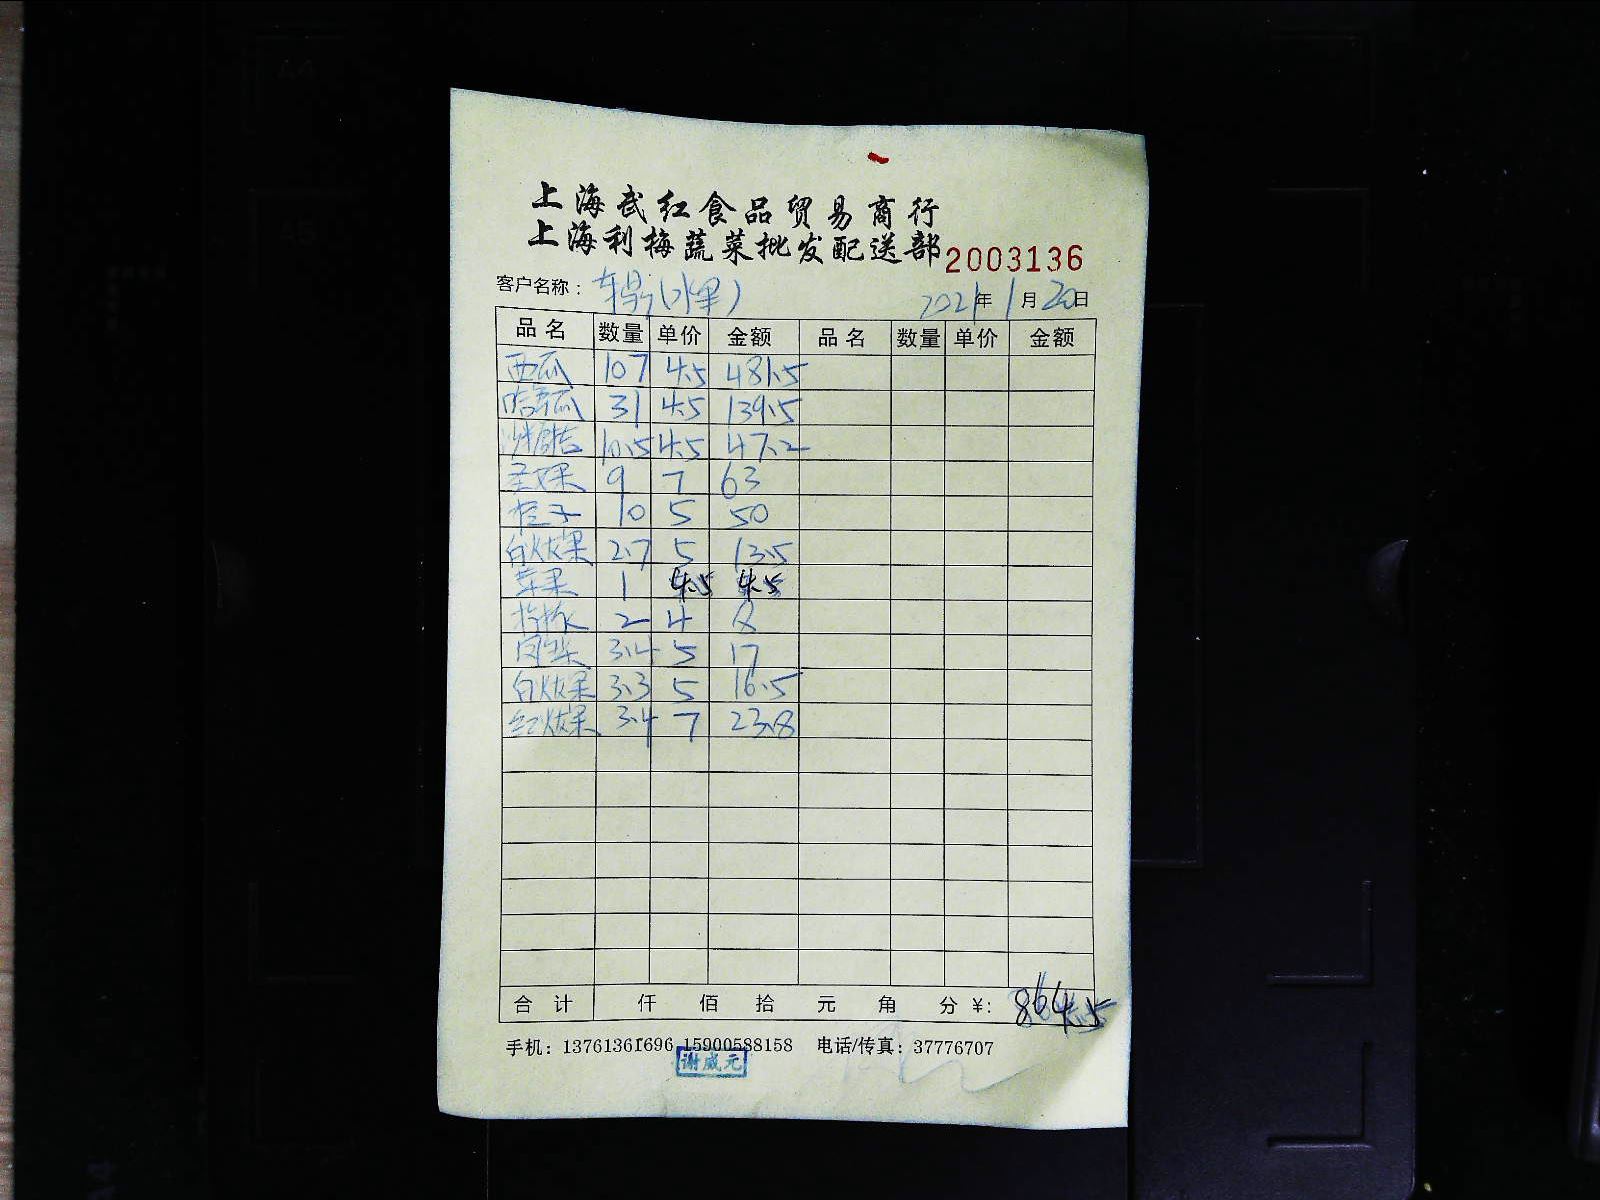 上海武红食品贸易商行
上海利梅蔬菜批发配送部 2003136
客户名称： (水果) 2021年1月20日
品名 数量 单价 金额 品名 数量 单价 金额
西瓜 107 4.5 481.5
哈蜜瓜 31 4.5 139.5
沙糖桔 10.5 4.5 47.2
圣女果 9 7 63
橙子 10 5 50
白火龙果 2.7 5 13.5
苹果 1 4.5 4.5
2 4 8
3.4 5 17
白火龙果 3.3 5 16.5
红火龙果 3.4 7 23.8
合计 仟 佰 拾 元 角 分 ¥: 864.5
手机：13761361696 15900588158 电话/传真：37776707
谢威元